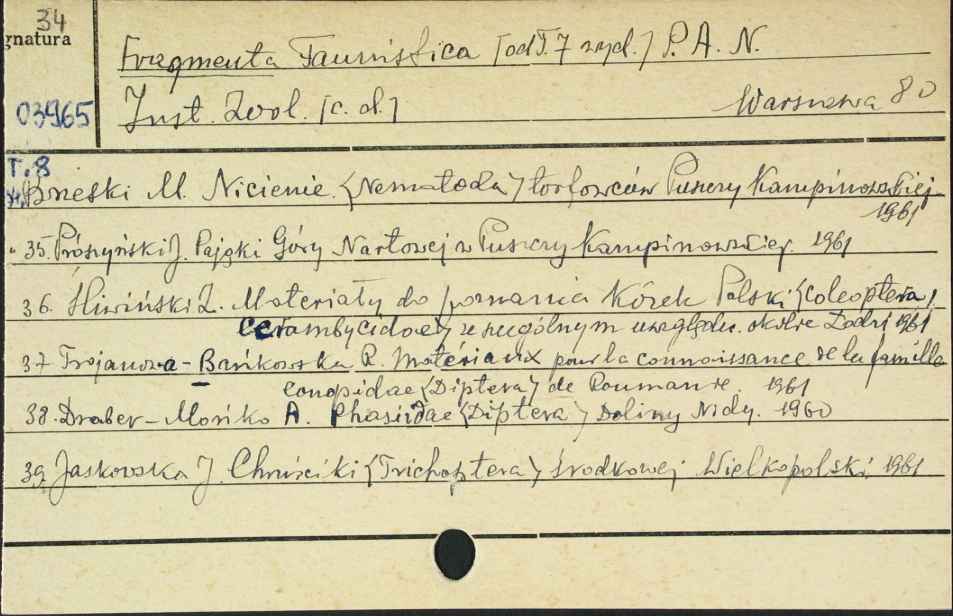 34
gnatura
Fragmenta Faunistica [od T. 7 wyd.] P. A. N.
03965
Inst. Zool. [c. d.]
Warszawa 80
T. 8
34. Brzeski M. Nicienie <Nematoda> torfowców Puszczy Kampinowskiej
1961
" 35. Prószyński J. Pająki Góry Nartowej w Puszczy Kampinowskiej. 1961
36. Śliwiński Z. Materiały do poznania Kózek Polski <Coleoptera,
Cerambycidae> ze szczególnym uwzględn. okolic Łodzi 1961
37 Trojanowa-Bańkowska R. Matériaux pour la connaissance de la famille
conopidae <Diptera> de Roumanie. 1961
38. Draber-Mońko A. Phasiidae <Diptera> Doliny Nidy. 1960
39. Jaskowska J. Chruściki <Trichoptera> Środkowej Wielkopolski. 1961